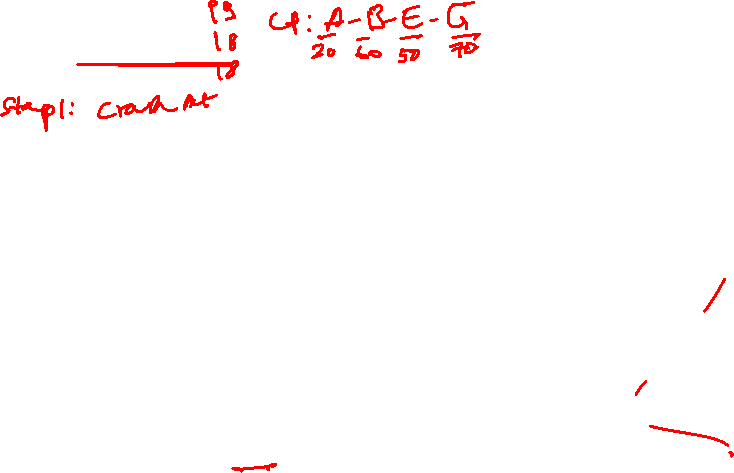 19
18
18
CP: A-B-E-G
20 60 50 70
Step1: Crash Act